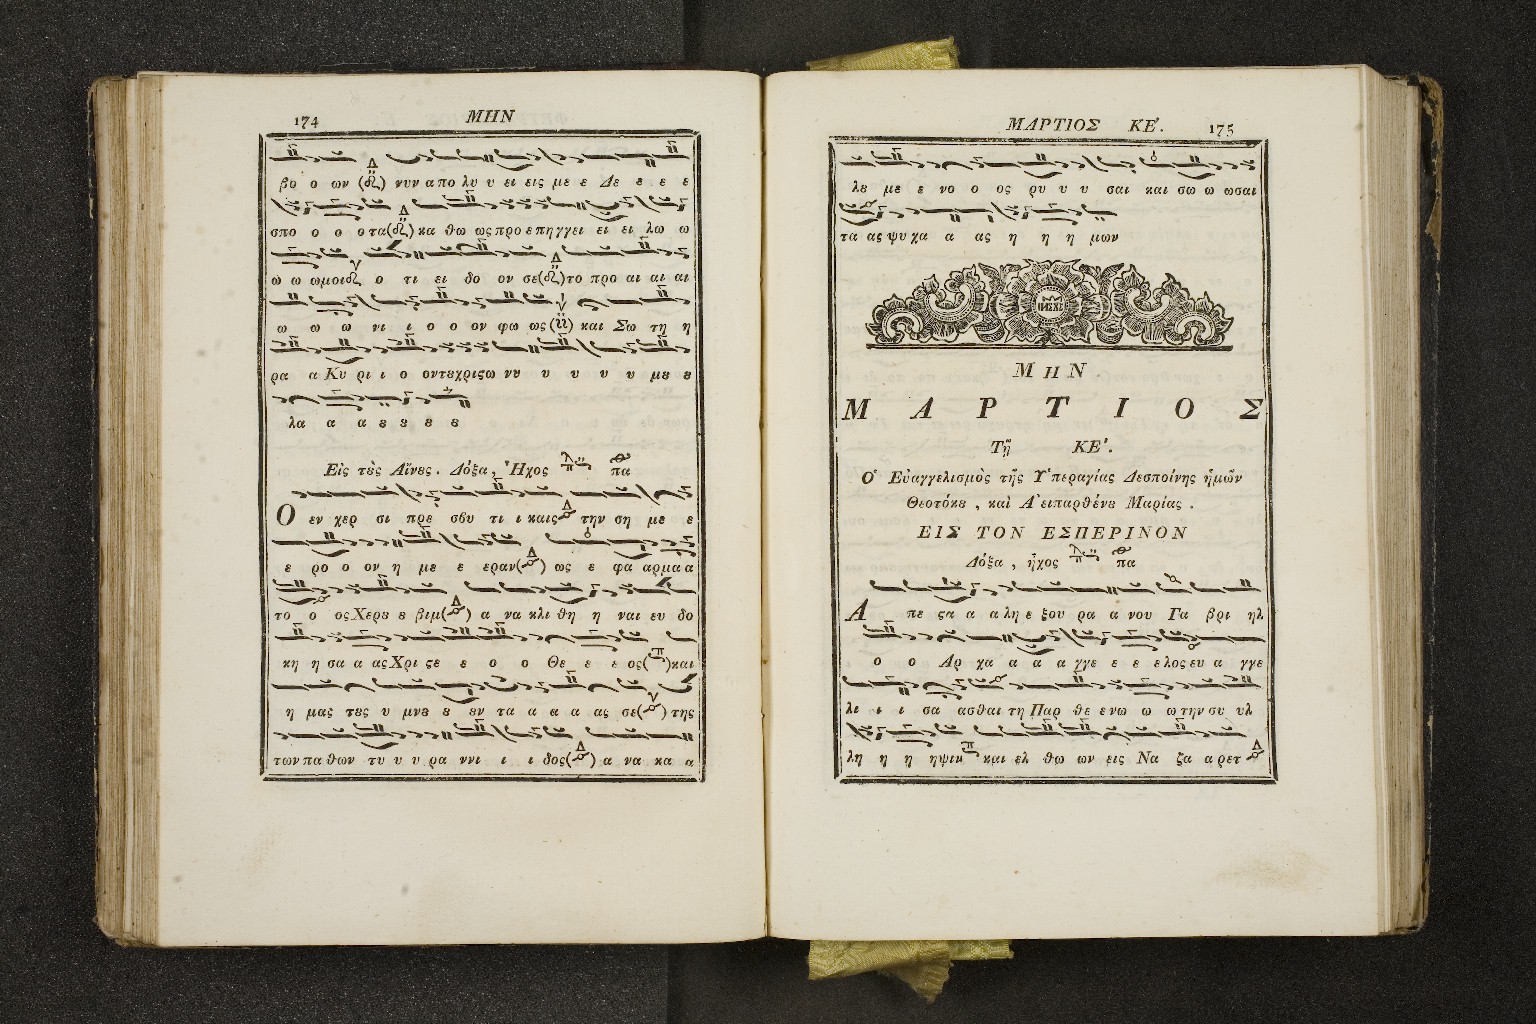 174 ΜΗΝ
βο ο ων (δι) νυν α πο λυ υ ει εις με ε Δε ε ε ε
σπο ο ο ο τα(δι) κα θω ως προ ε πη γγει ει ει λω ω
ω ω ωμοι ο τι ει δο ον σε(δι)το προ αι αι αι
ω ω ω νι ι ο ο ον φω ως ( ) και Σω τη η
ρα α Κυ ρι ι ο οντȣχριςω νυ υ υ υ υ με ε
λα α α ȣ ȣ ȣ ȣ
Εἰς τȣ̀ς Αἴνες. Δόξα, Ἦχος πα
Ο εν χερ σι πρε σβυ τι ι καις την ση με ε
ε ρο ο ον η με ε εραν( ) ως ε φα αρμαα
το ο οςΧερȣ ȣ βιμ( ) α να κλι θη η ναι ευ δο
κη η σα α αςΧρι ςε ε ο ο Θε ε ε ος( )και
η μας τȣς υ μνȣ ȣ ȣν τα α α α ας σε( ) της
των πα θων τυ υ υ ρα ννι ι ι δος( ) α να κα α
ΜΑΡΤΙΟΣ ΚΕ΄. 175
λε με ε νο ο ος ρυ υ υ σαι και σω ω ωσαι
τα ας ψυ χα α ας η η η μων
ΜΗΝ
ΜΑΡΤΙΟΣ
Τῇ ΚΕ΄.
Ὁ Εὐαγγελισμὸς τῆς Ὑπεραγίας Δεσποίνης ἡμῶν
Θεοτόκȣ, καὶ Ἀειπαρθένȣ Μαρίας.
ΕΙΣ ΤΟΝ ΕΣΠΕΡΙΝΟΝ
Δόξα, ἦχος πα
Α πε ςα α α λη ε ξου ρα α νου Γα βρι ηλ
ο ο Αρ χα α α α γγε ε ε ε λος ευ α γγε
λι ι ι σα ασθαι τη Παρ θε ε νω ω ω την συ υλ
λη η η ηψιν και ελ θω ων εις Να ζα α ρετ